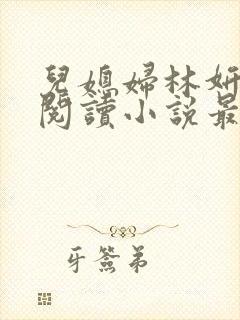 兒媳婦林妍
閱讀小說最
牙簽弟